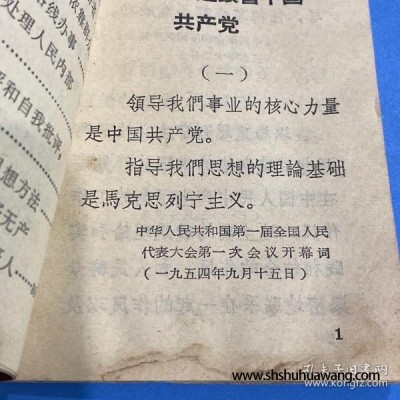 线办事
处理人民内部
和自我批评,
思想方法
无产
跟着中国
共产党
(一)
領导我們事业的核心力量
是中国共产党。
指导我們思想的理論基础
是馬克思列宁主义。
中华人民共和国第一届全国人民
代表大会第一次会议开幕词
(一九五四年九月十五日)
1
www.shshuhuawang.com
孔夫子旧书网
www.kongfz.com